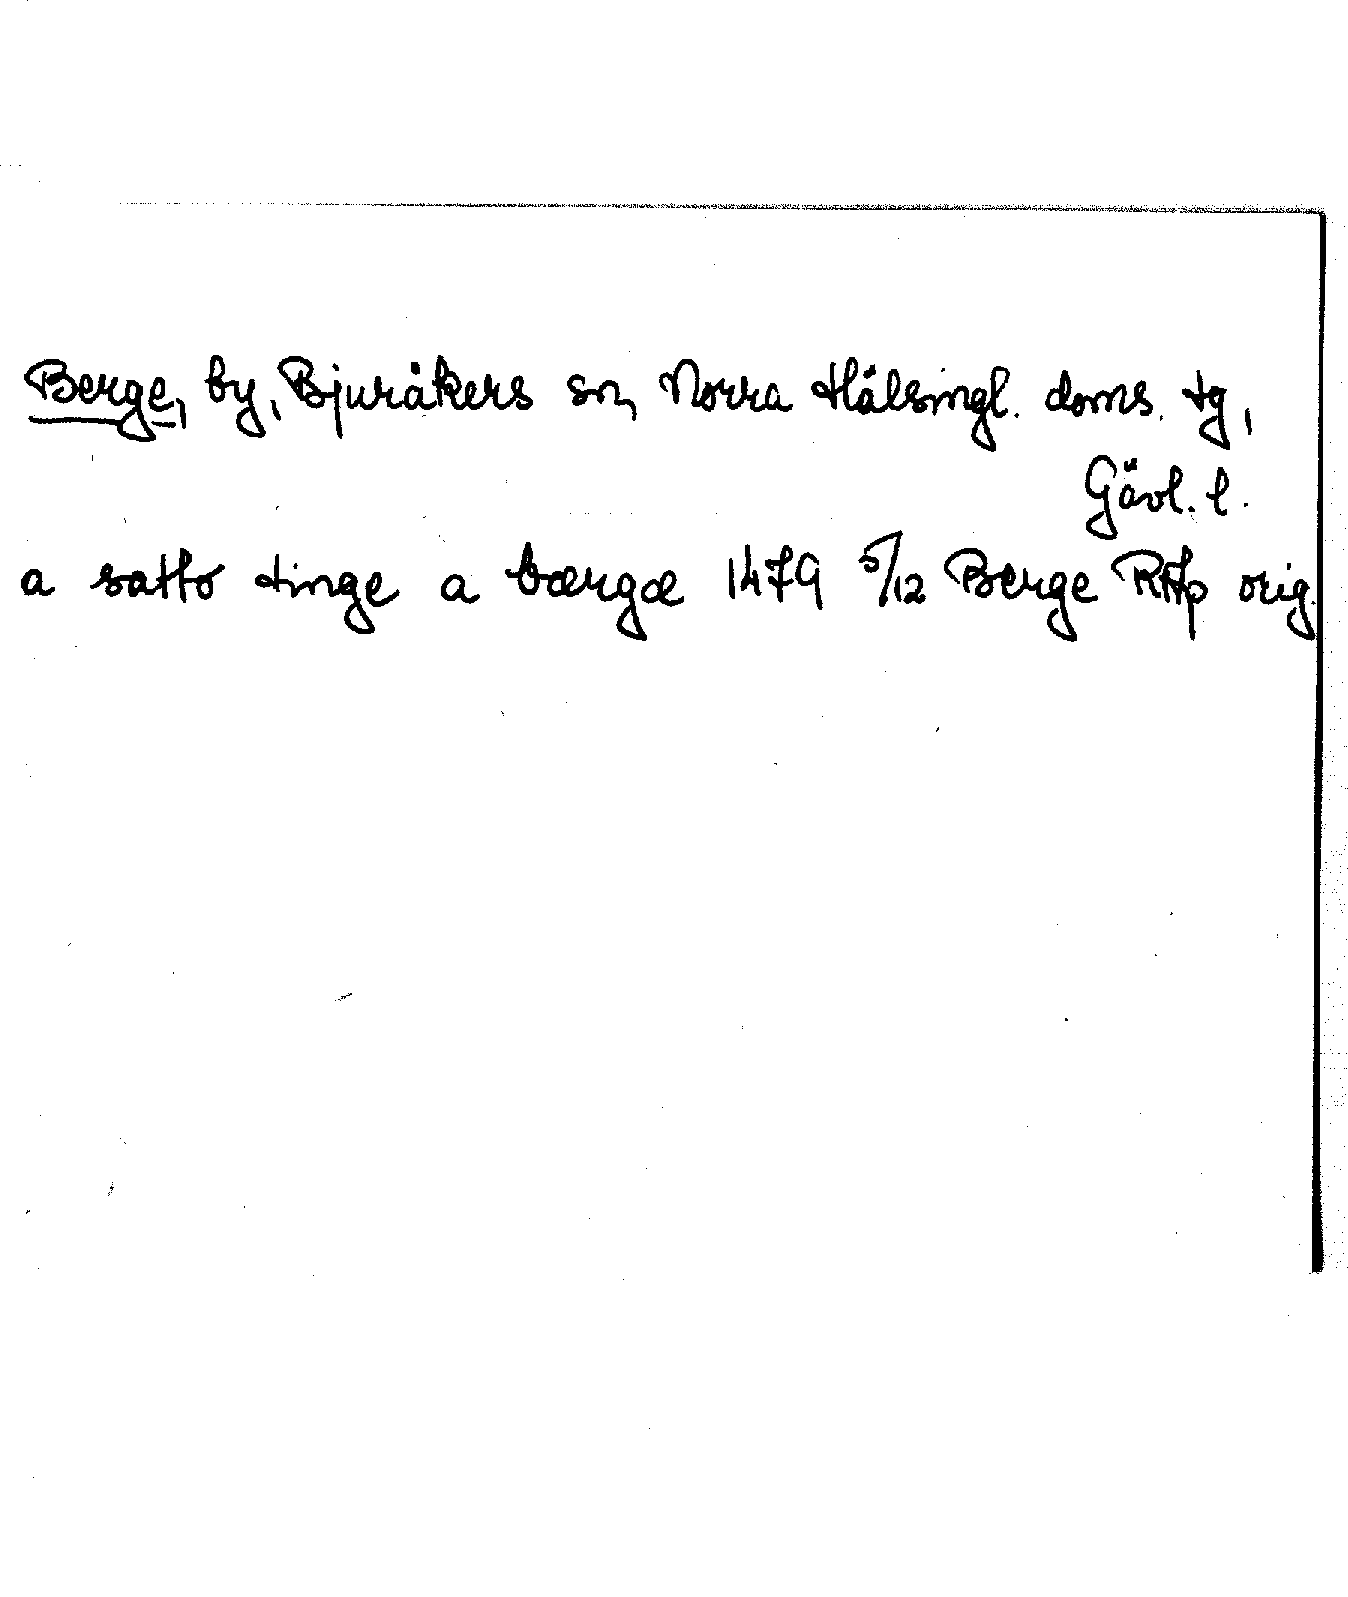 Berge, by, Bjuråkers sn, Norra Hälsingl. doms. tg,
Gävl. l.
a satto tinge a bærgæ 1479 5/12 Berge RAp orig.